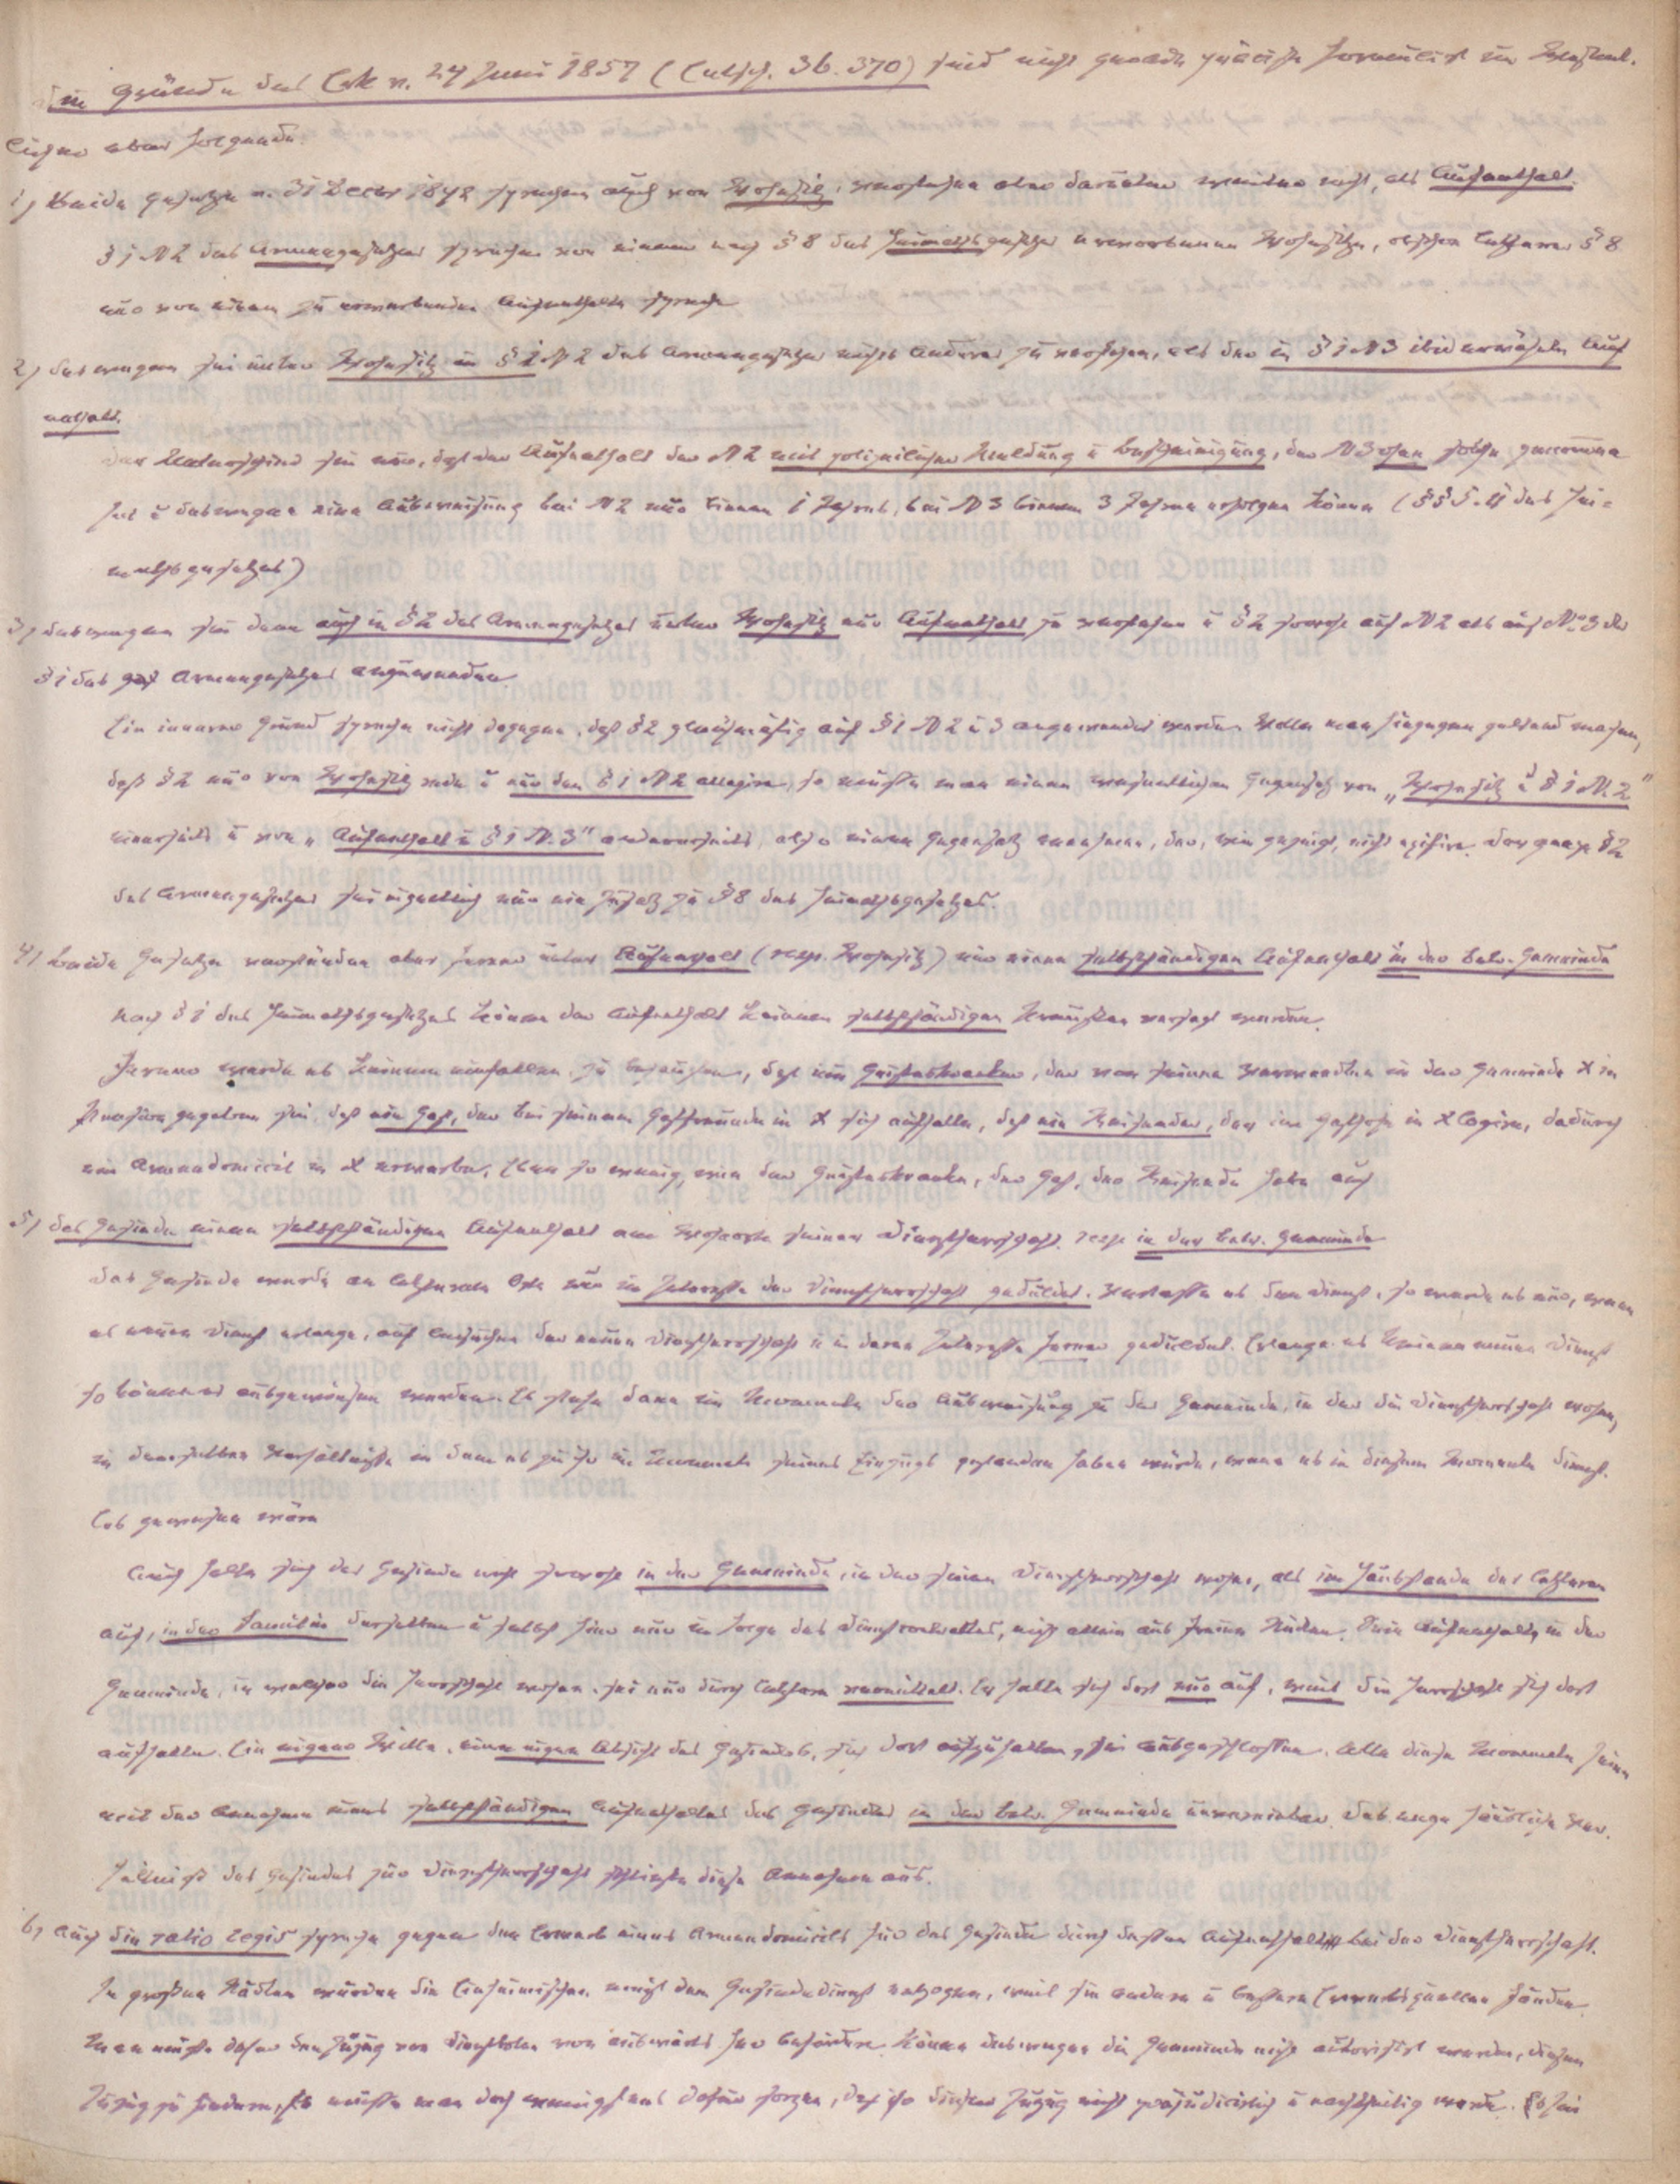 Die Gründe des Erk. v. 24 Juni 1857 (Entsch. 36. 370) sind nicht gerade präcise formulirt im Wesentl.
lichen aber folgende:
1) Beide Gesetze v. 31 Decbr 1842 sprechen auch von Wohnsitz; verstehen aber darunter weiter nichts, als Aufenthalt.
§ 1 N 2 des Armengesetzes spreche von einem nach § 8 des Heimathsgesetzes erworbenen Wohnsitze, obschon letzterer § 8
nur von einem zu erwerbenden Aufenthalte spreche
2) deswegen sei unter Wohnsitz in § 1 N 2 des Armengesetzes nichts Anderes zu verstehen, als der in § 1 N 3 ibid erwähnte Auf
enthalt.
Der Unterschied sei nur, daß der Aufenthalt der N 2 mit polizeilicher Meldung u Bescheinigung, der N 3 ohne solche genommen
sei u deswegen eine Ausweisung bei N 2 nur binnen 1 Jahres, bei N 3 binnen 3 Jahren erfolgen könne (§§ 5. 4 des Hei=
mathsgesetzes)
3) deswegen sei dann auch in § 2 des Armengesetzes unter Wohnsitz nur Aufenthalt zu verstehen u § 2 sowohl auf N 2 als auf No 3 des
§ 1 des Armengesetzes anzuwenden.
Ein innerer Grund spreche nicht dagegen, daß § 2 gleichmäßig auf § 1 N 2 u 3 angewendet werde. Wolle man hiegegen geltend machen,
daß § 2 nur von Wohnsitz rede u nur den § 1 N 2 allegire, so müßte man einen wesentlichen Gegensatz von „Wohnsitz u § 1 N. 2"
einerseits u von „Aufenthalt u § 1 N. 3" andererseits, also einen Gegensatz annehmen, der, wie gezeigt, nicht existire. Der ganze § 2
des Armengesetzes sei eigentlich nur ein Zusatz zu § 8 des Heimathsgesetzes.
4) Beide Gesetze verständen aber ferner unter Aufenthalt (resp. Wohnsitz) nur einen selbstständigen Aufenthalt in der betr. Gemeinde
Nach § 1 des Heimathsgesetzes könne der Aufenthalt keinem selbständigen Preußen versagt werden.
Ferner werde es Keinem einfallen zu behaupten, daß ein Geisteskranker, der von seinen Verwandten in der Gemeinde X in
Pension gegeben sei, daß ein Gast, der bei seinem Gastfreunde in X sich aufhalte, daß ein Reisender, der im Gasthofe in X logire, dadurch
ein Armendomicil in X erwerbe. Eben so wenig, wie der Geisteskranke, der Gast, der Reisende habe auch
5) das Gesinde einen selbstständigen Aufenthalt am Wohnorte seiner Dienstherrschaft resp in der betr. Gemeinde
Das Gesinde werde an letzterem Orte nur im Interesse der Dienstherrschaft geduldet. Verlasse es den Dienst, so werde es nur, wenn
es neuen Dienst erlange, auf Ansuchen der neuen Dienstherrschaft u in deren Interesse ferner geduldet. Erlange es keinen neuen Dienst
so könne es ausgewiesen werden. Es stehe dann im Momente der Ausweisung zu der Gemeinde, in der die Dienstherrschaft wohne,
in demselben Verhältnisse in dem es zu ihr im Momente seines Einzugs gestanden haben würde, wenn es in diesem Momente dienst-
los gewesen wäre
Auch halte sich das Gesinde nicht sowohl in der Gemeinde, in der seine Dienstherrschaft wohne, als im Hausstande der letzteren
auf, in der Familie derselben u selbst hier nur in Folge des Dienstvertrags, nicht allein aus freien Stücken. Sein Aufenthalt in der
Gemeinde, in welcher die Herrschaft wohne, sei nur durch letztere vermittelt. Er halte sich dort nur auf, weil die Herrschaft sich dort
aufhalte. Ein eigener Wille, eine eigene Absicht des Gesindes, sich dort aufzuhalten, sei ausgeschlossen. Alle diese Momente seien
mit der Annahme eines selbstständigen Aufenthaltes des Gesindes in der betr. Gemeinde unvereinbar. Das enge häusliche Ver-
hältniß des Gesindes zur Dienstherrschaft schließe diese Annahme aus.
6) Auch die ratio legis spreche gegen den Erwerb eines Armendomicils für das Gesinde durch dessen Aufenthalt bei der Dienstherrschaft.
In großen Städten würden die Einheimischen meist dem Gesindedienst entzogen, weil sie andere u bessere Erwerbsquellen fänden.
Man müßte daher den Zuzug von Dienstboten von auswärts her befördern. Könne deswegen die Gemeinde nicht autorisirt werden, diesen
Zuzug zu hindern, so müsse man doch wenigstens dafür sorgen, daß ihr dieser Zuzug nicht präjudicirlich u nachtheilig werde. Es sei